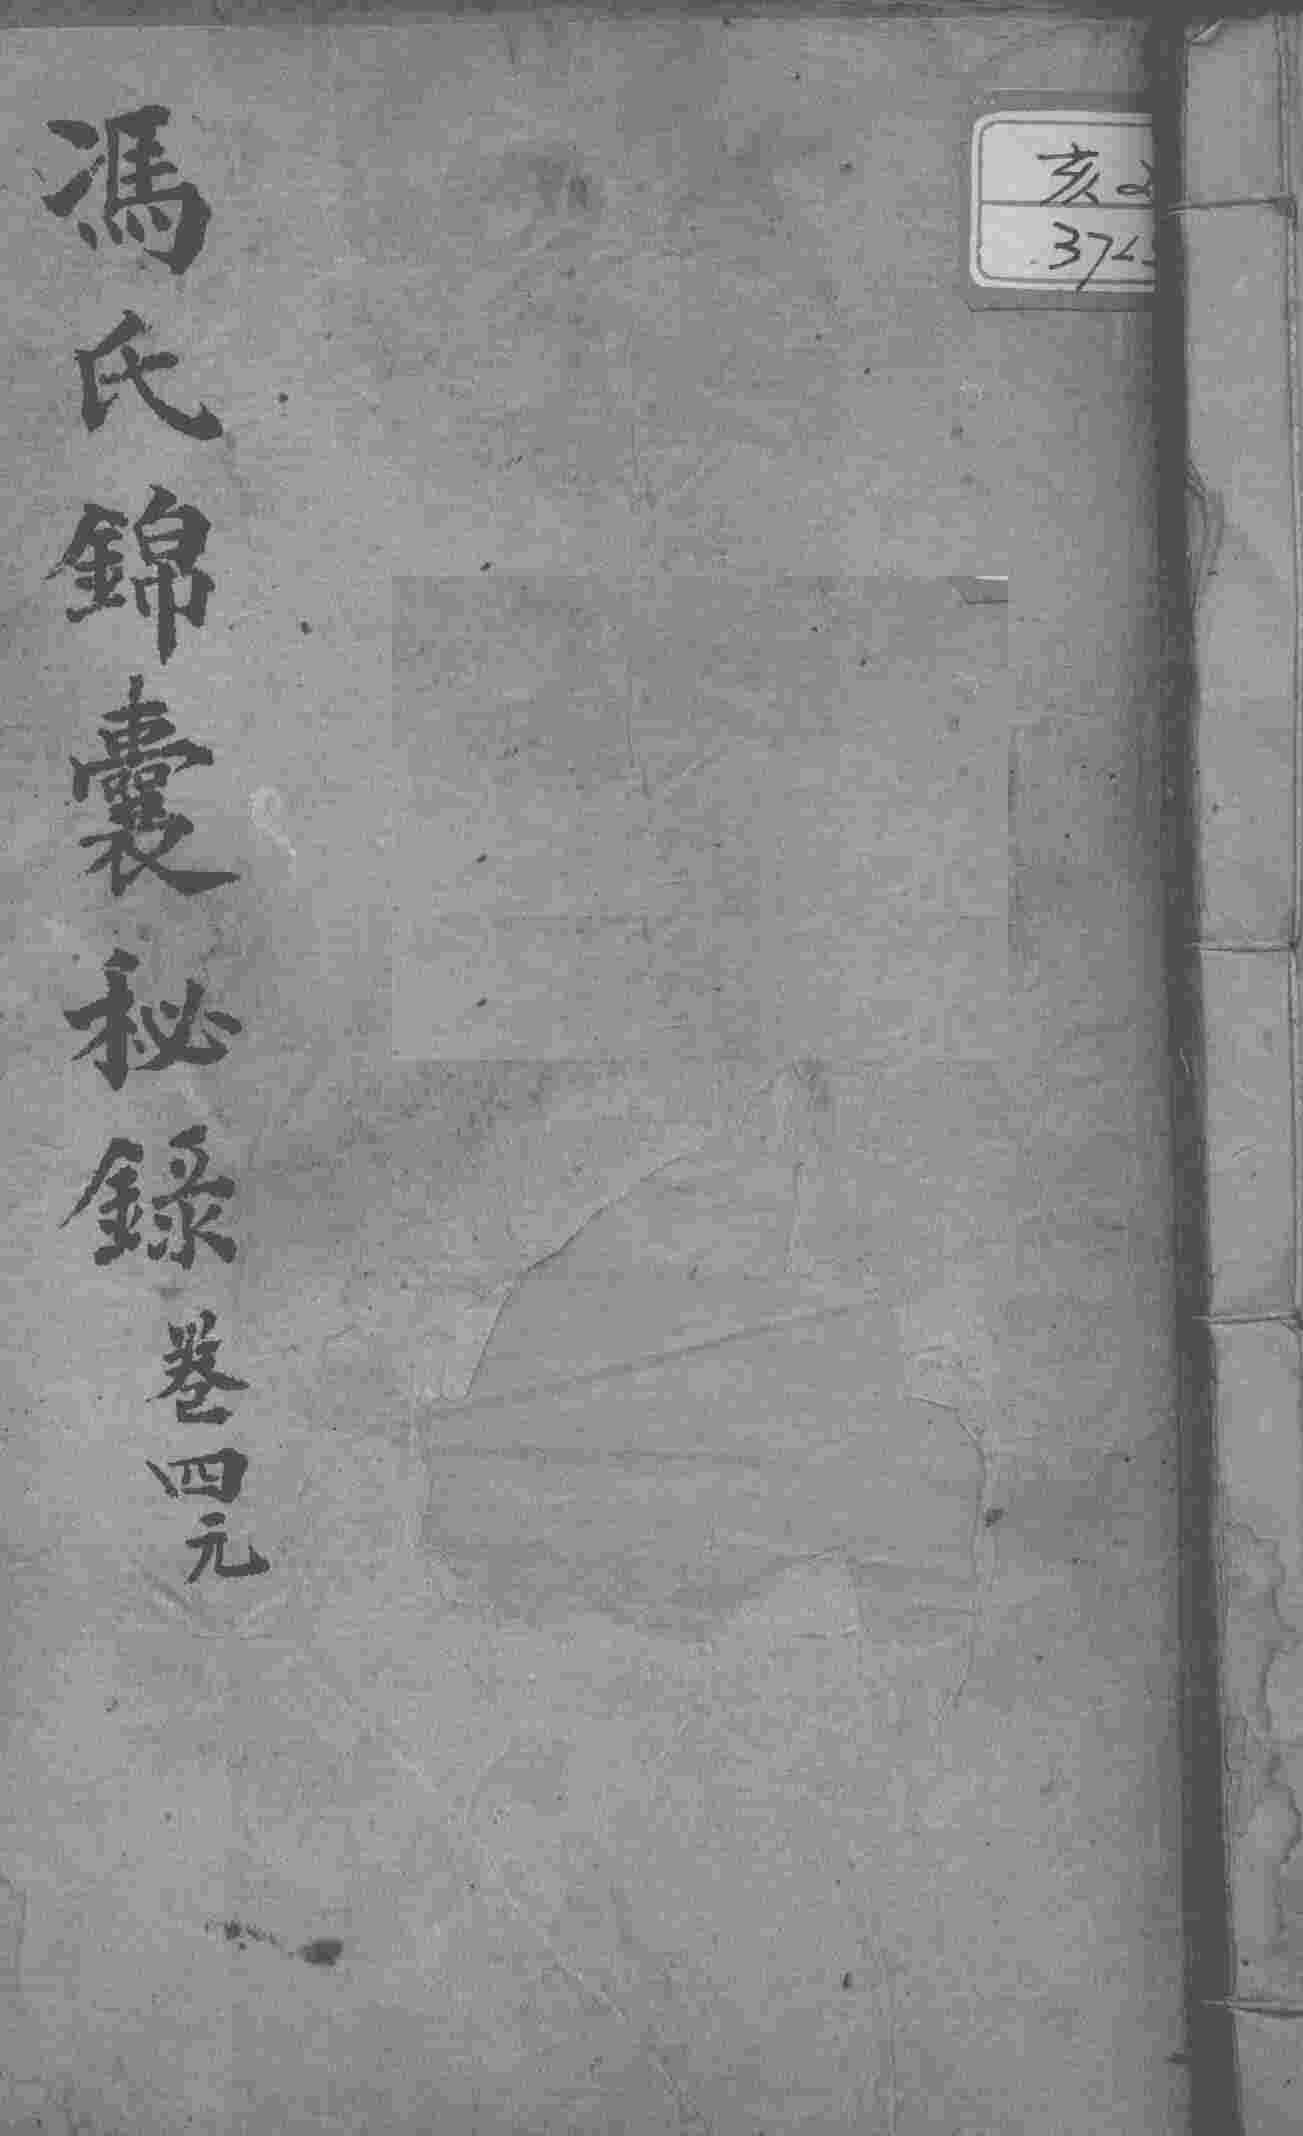 馮氏錦囊秘錄 卷四 元
亥
37